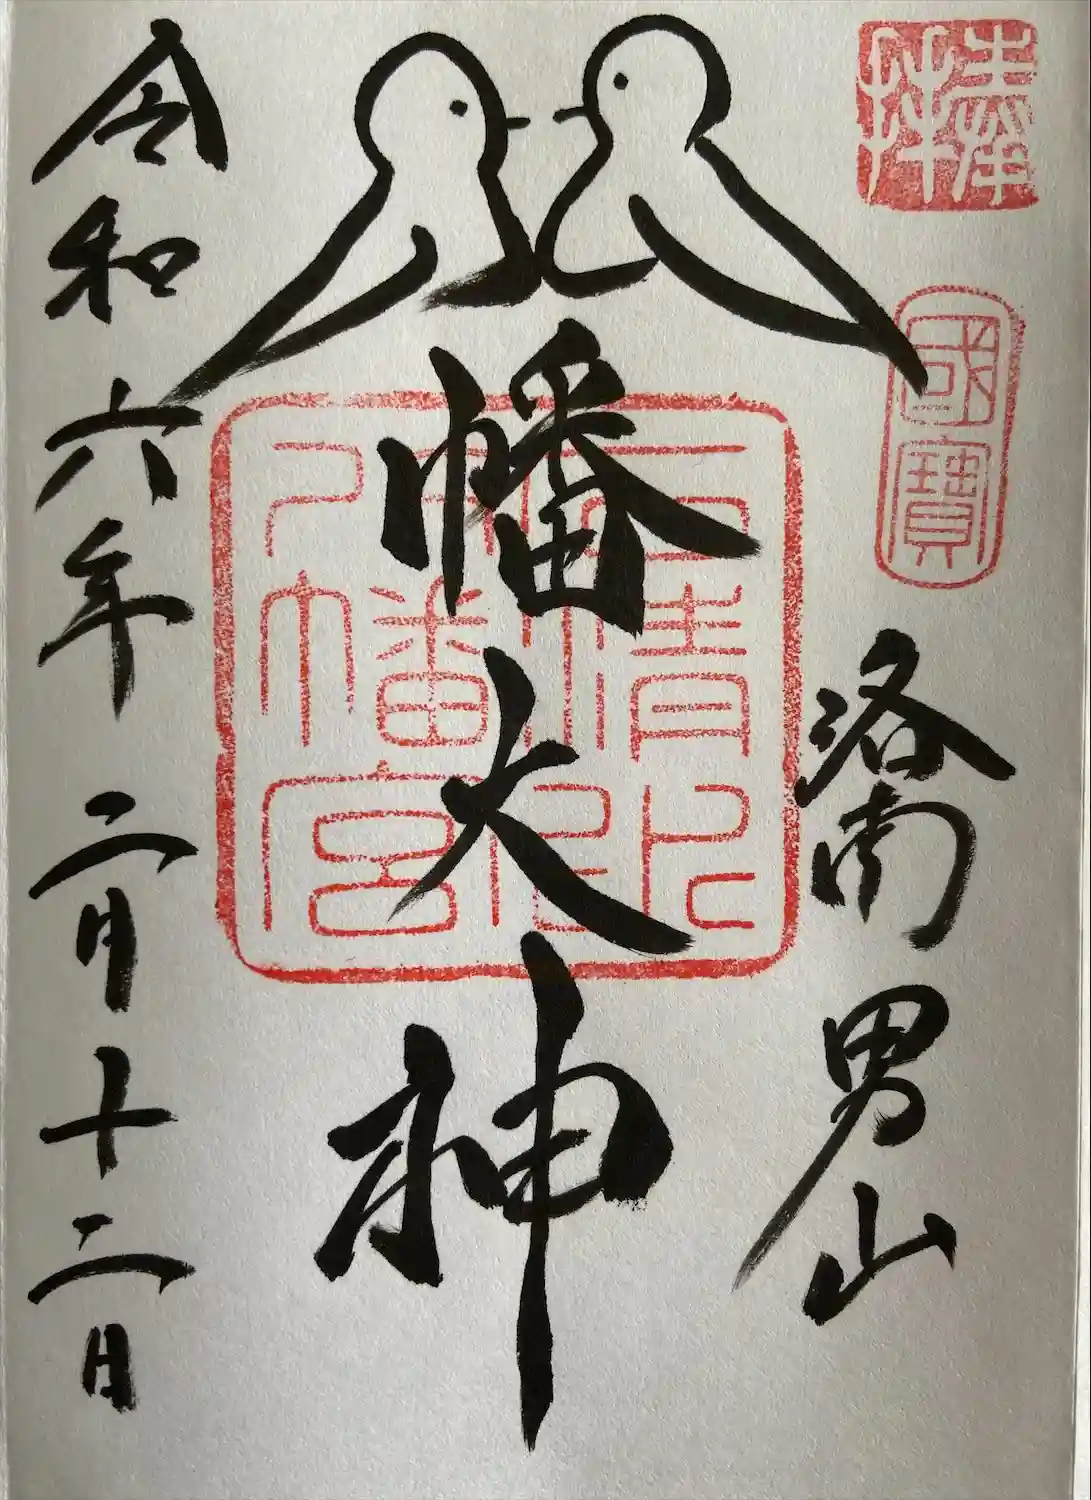 奉拝
國寶
洛南男山
八幡大神
石清水八幡宮
令和六年二月十二日